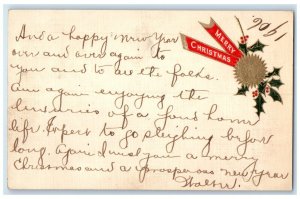 1906
MERRY
CHRISTMAS
And a happy New Year
over and over again to
you and to all the folks.
Am again enjoying the
luxuries of a good home
life. Expect to go sleighing before
long. Again I wish you a merry
Christmas and a prosperous new year
Walter.